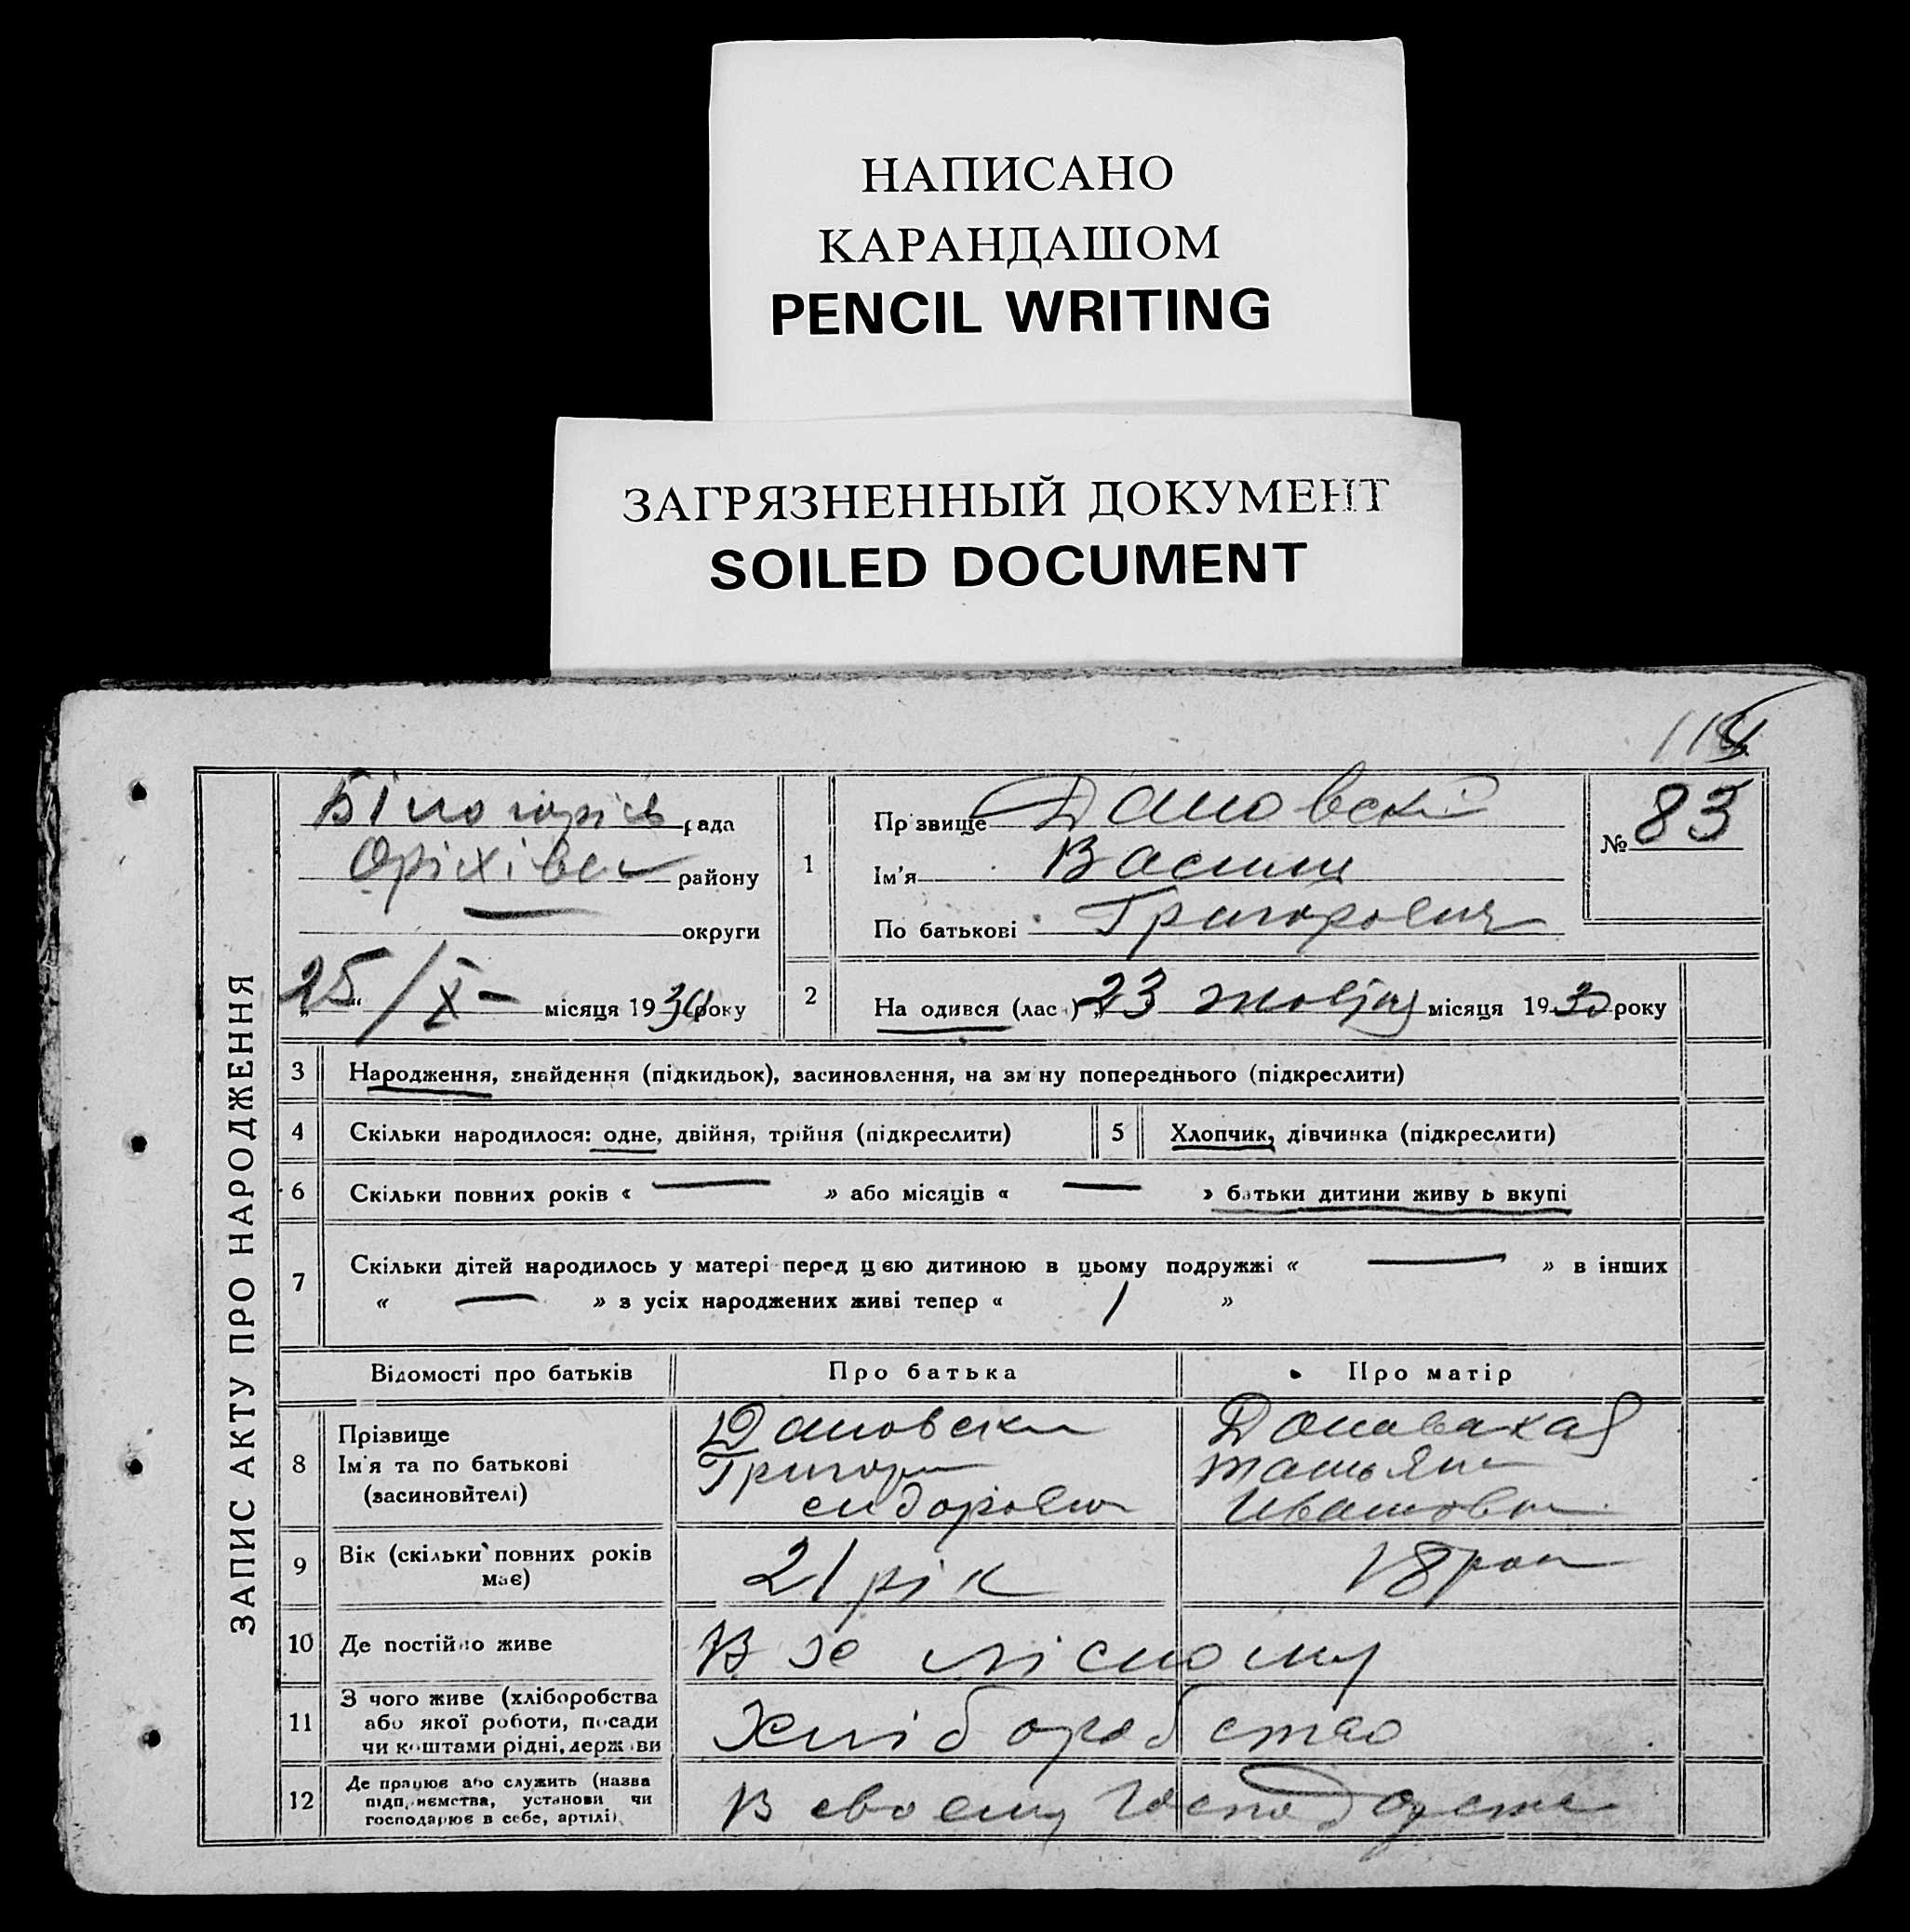 НАПИСАНО
КАРАНДАШОМ
PENCIL WRITING
ЗАГРЯЗНЕННЫЙ ДОКУМЕНТ
SOILED DOCUMENT
ЗАПИС АКТУ ПРО НАРОДЖЕННЯ
рада
району
округи
25/X- місяця 1930 року
1
Прізвище Дановскі
Ім'я Васил
По батькові Григорович
№ 83
2
На одився (лас ) 23 жовтня місяця 1930 року
3 Народження, знайдення (підкидьок), засиновлення, на зм ну попереднього (підкреслити)
4 Скільки народилося: одне, двійня, трійня (підкреслити)
5 Хлопчик, дівчинка (підкреслити)
6 Скільки повних років « — » або місяців « — » батьки дитини живу ь вкупі
7 Скільки дітей народилось у матері перед цією дитиною в цьому подружжі « — » в інших
« — » з усіх народжених живі тепер « 1 »
Відомості про батьків Про батька Про матір
8 Прізвище
Ім'я та по батькові
(засиновителі)
Дановски
Григори
сидорович
Дановская
татьяна
Ивановна
9 Вік (скільки повних років
має)
21 рік
18 рок
10 Де постійно живе
В х лісному
11 З чого живе (хліборобства
або якої роботи, посади
чи коштами рідні, держави
Хліборобство
12 Де працює або служить (назва
підприємства, установи чи
господарює в себе, артілі)
В своему